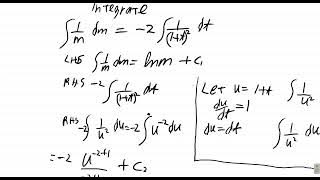 Integrate
∫ 1/m dm = -2 ∫ 1/(1+t)² dt
LHS ∫ 1/m dm = ln m + C₁
RHS -2 ∫ 1/(1+t)² dt
RHS -2 ∫ 1/u² du = -2 ∫ u⁻² du
= -2 u⁻²⁺¹/-2+1 + C₂
Let u = 1+t ∫ 1/u²
du/dt = 1
du = dt ∫ 1/u² du